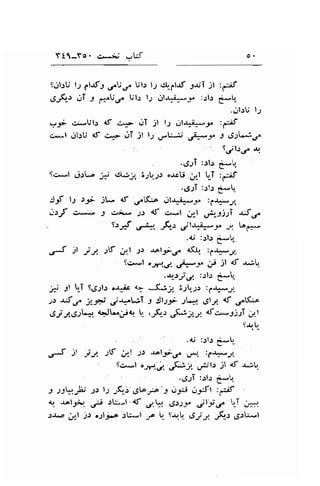 ۵۰ کتاب نخست ۳۵۰-۳۴۹
گفتم: از آندو کدامیك را دانا می‌نامی وکدام را نادان؟
پاسخ داد: موسیقیدان را دانا می‌نامیم و آن دیگری
را نادان.
گفتم: موسیقیدان را از آن حیث که داناست خوب
می‌شماری و موسیقی نشناس را از آن حیث که نادان است
بد می‌دانی؟
پاسخ داد: آری.
گفتم: آیا این قاعده دربارهٔ پزشك نیز صادق است؟
پاسخ داد: آری.
پرسیدم: موسیقیدان هنگامی که ساز خود را کوك
می‌کند آرزویش این است که در سخت و سست کردن
سیمها بر موسیقیدانی دیگر بیشی گیرد؟
پاسخ داد: نه.
پرسیدم: بلکه می‌خواهد در این کار برتر از کسی
باشد که از فن موسیقی بی‌بهره است؟
پاسخ داد: بی‌تردید.
پرسیدم: دربارهٔ پزشك چه عقیده داری؟ آیا او نیز
هنگامی که برای بیمار خوراك و آشامیدنی تجویز می‌کند در
این آرزوست‌که‌برپزشکی دیگر، یا به‌فن‌معالجه بیماری‌برتری
یابد؟
پاسخ داد: نه.
پرسیدم: پس می‌خواهد در این کار برتر از کسی
باشد که از دانش پزشکی بی‌بهره است؟
پاسخ داد: آری.
گفتم: اکنون فنون و هنرهای دیگر را در نظربیاور و
ببین آیا می‌توانی موردی بیابی که استاد فنی بخواهد به
استادی دیگر برتری یابد؟ یا هر استاد همواره در این صدد